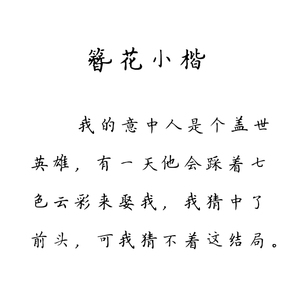 簪花小楷
我的意中人是个盖世
英雄，有一天他会踩着七
色云彩来娶我，我猜中了
前头，可我猜不着这结局。